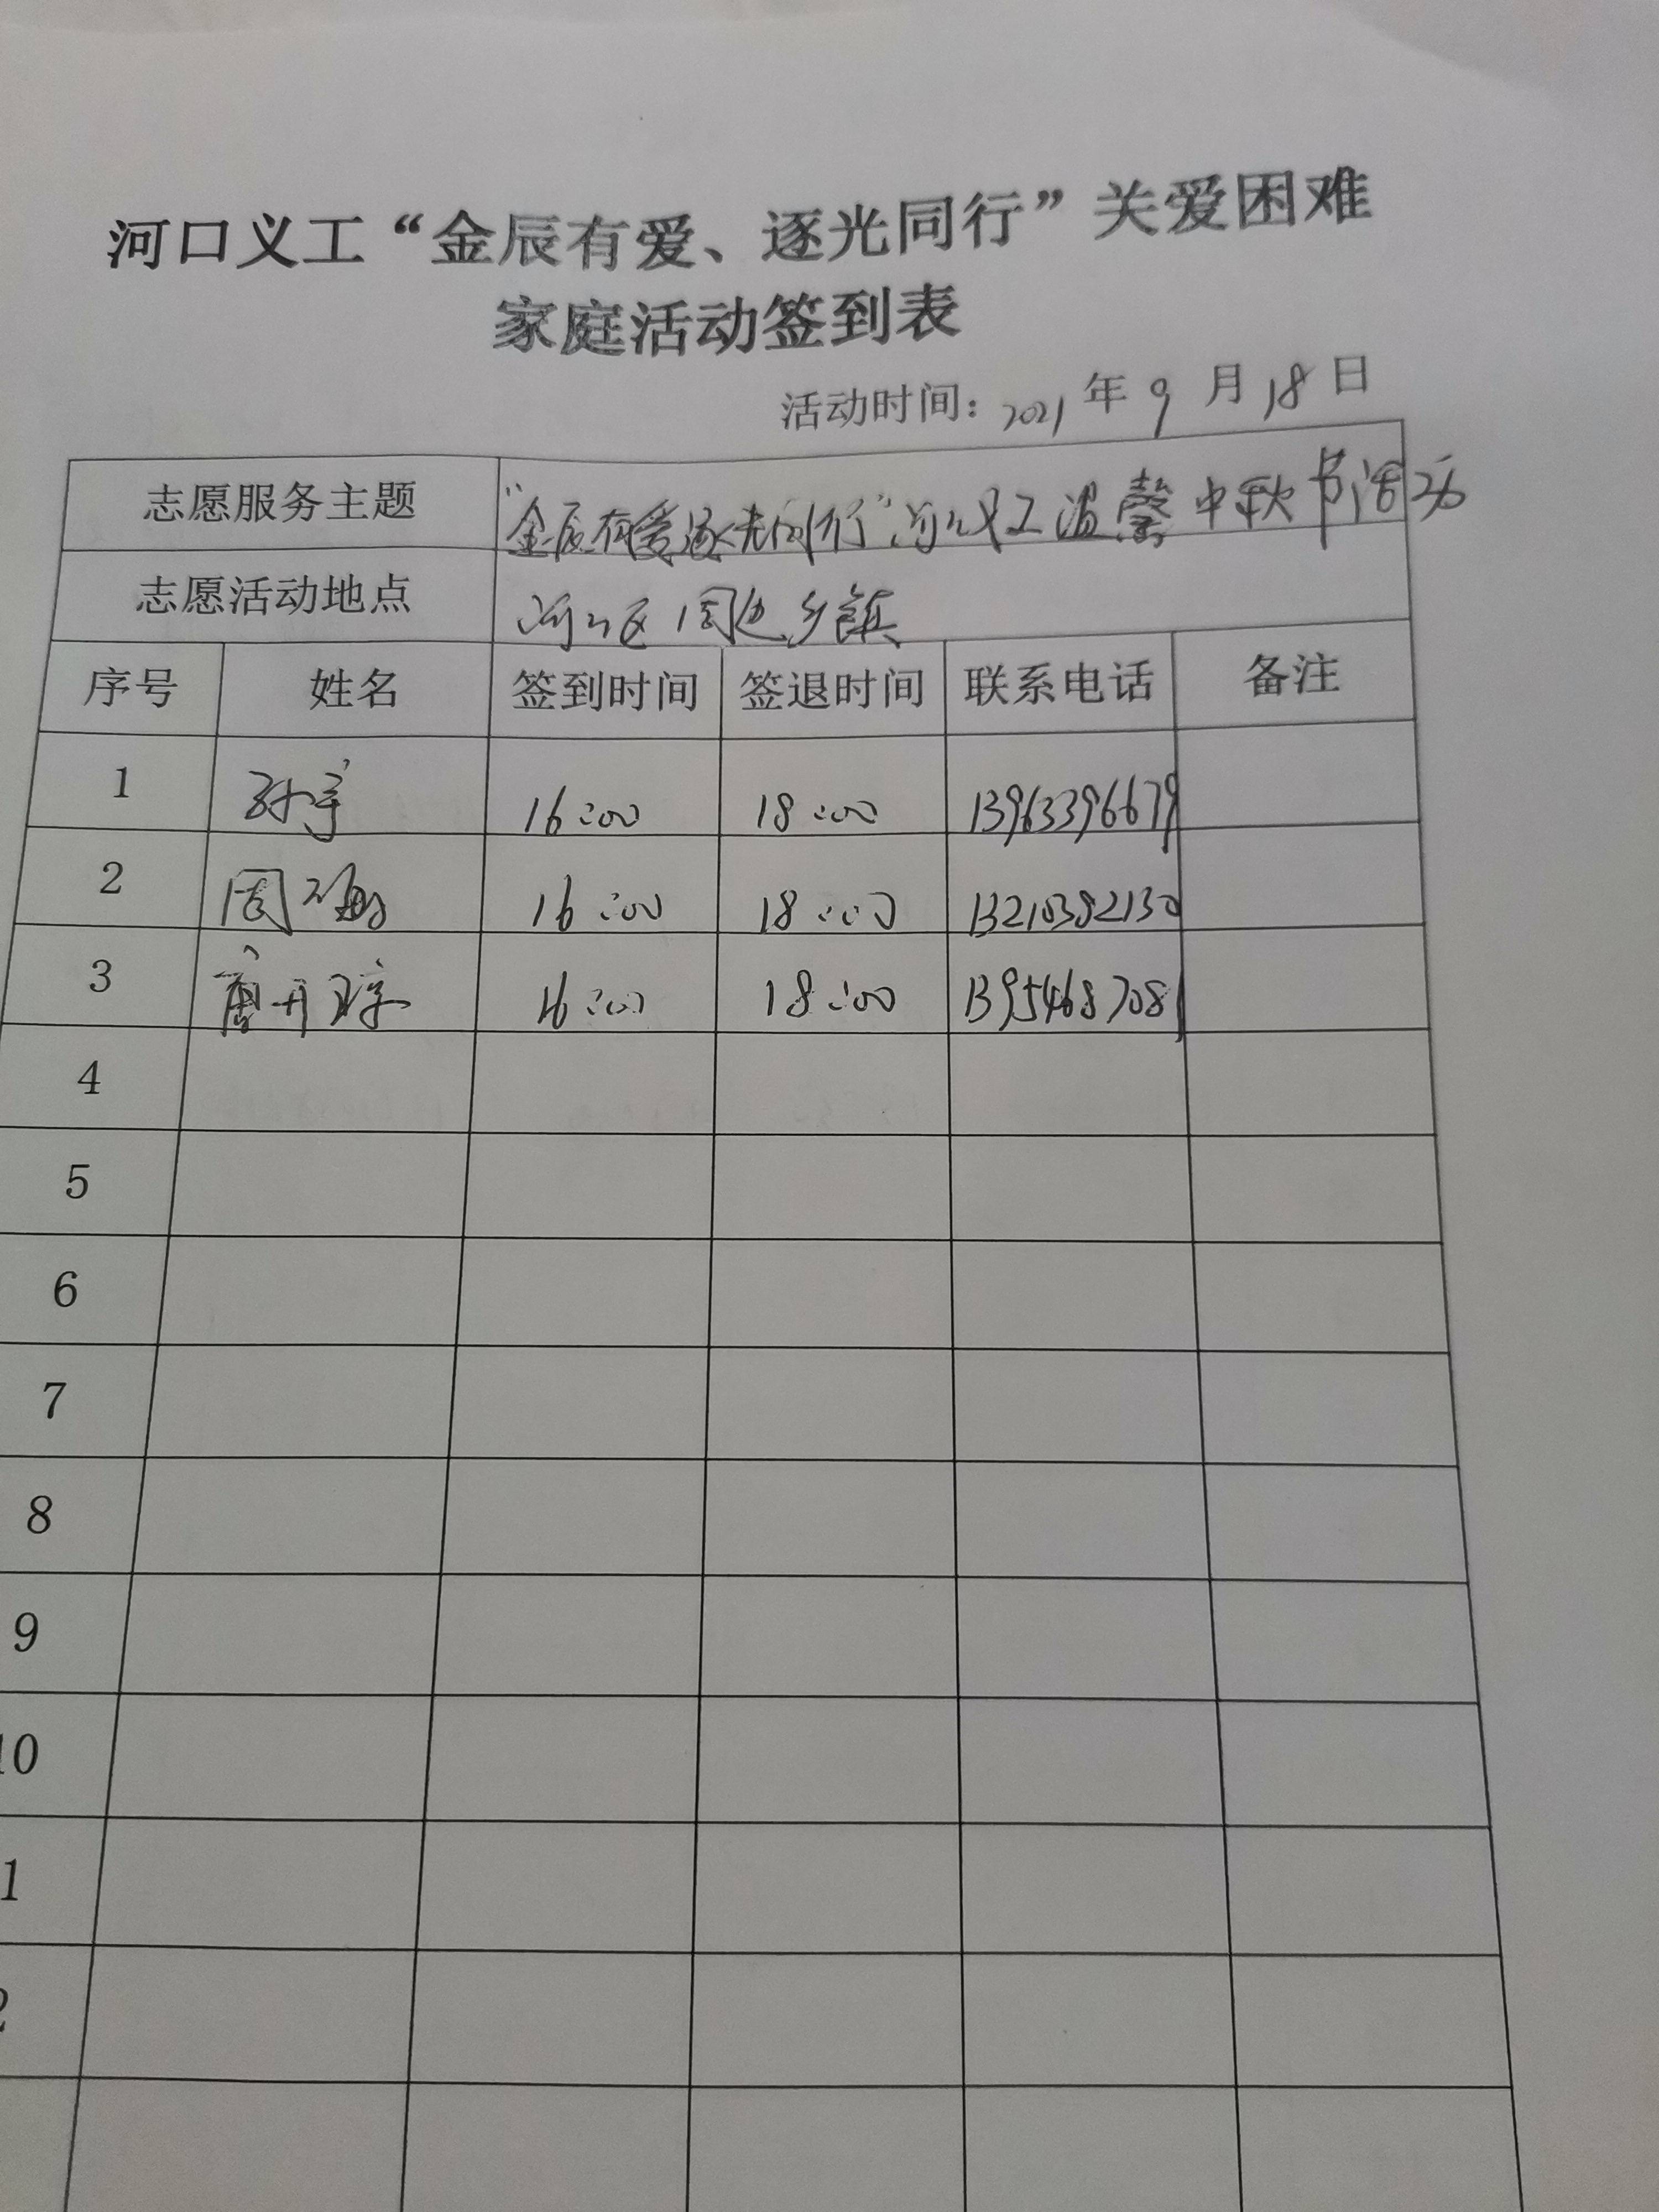 河口义工“金辰有爱、逐光同行”关爱困难
家庭活动签到表
活动时间：2021年9月18日
志愿服务主题 “金辰有爱逐光同行”河口义工温馨中秋节活动
志愿活动地点 河口区周边乡镇
序号 姓名 签到时间 签退时间 联系电话 备注
1 孙宇 16:00 18:00 13963396679
2 周 16:00 18:00 13210382130
3 16:00 18:00 13954687081
4
5
6
7
8
9
10
1
2